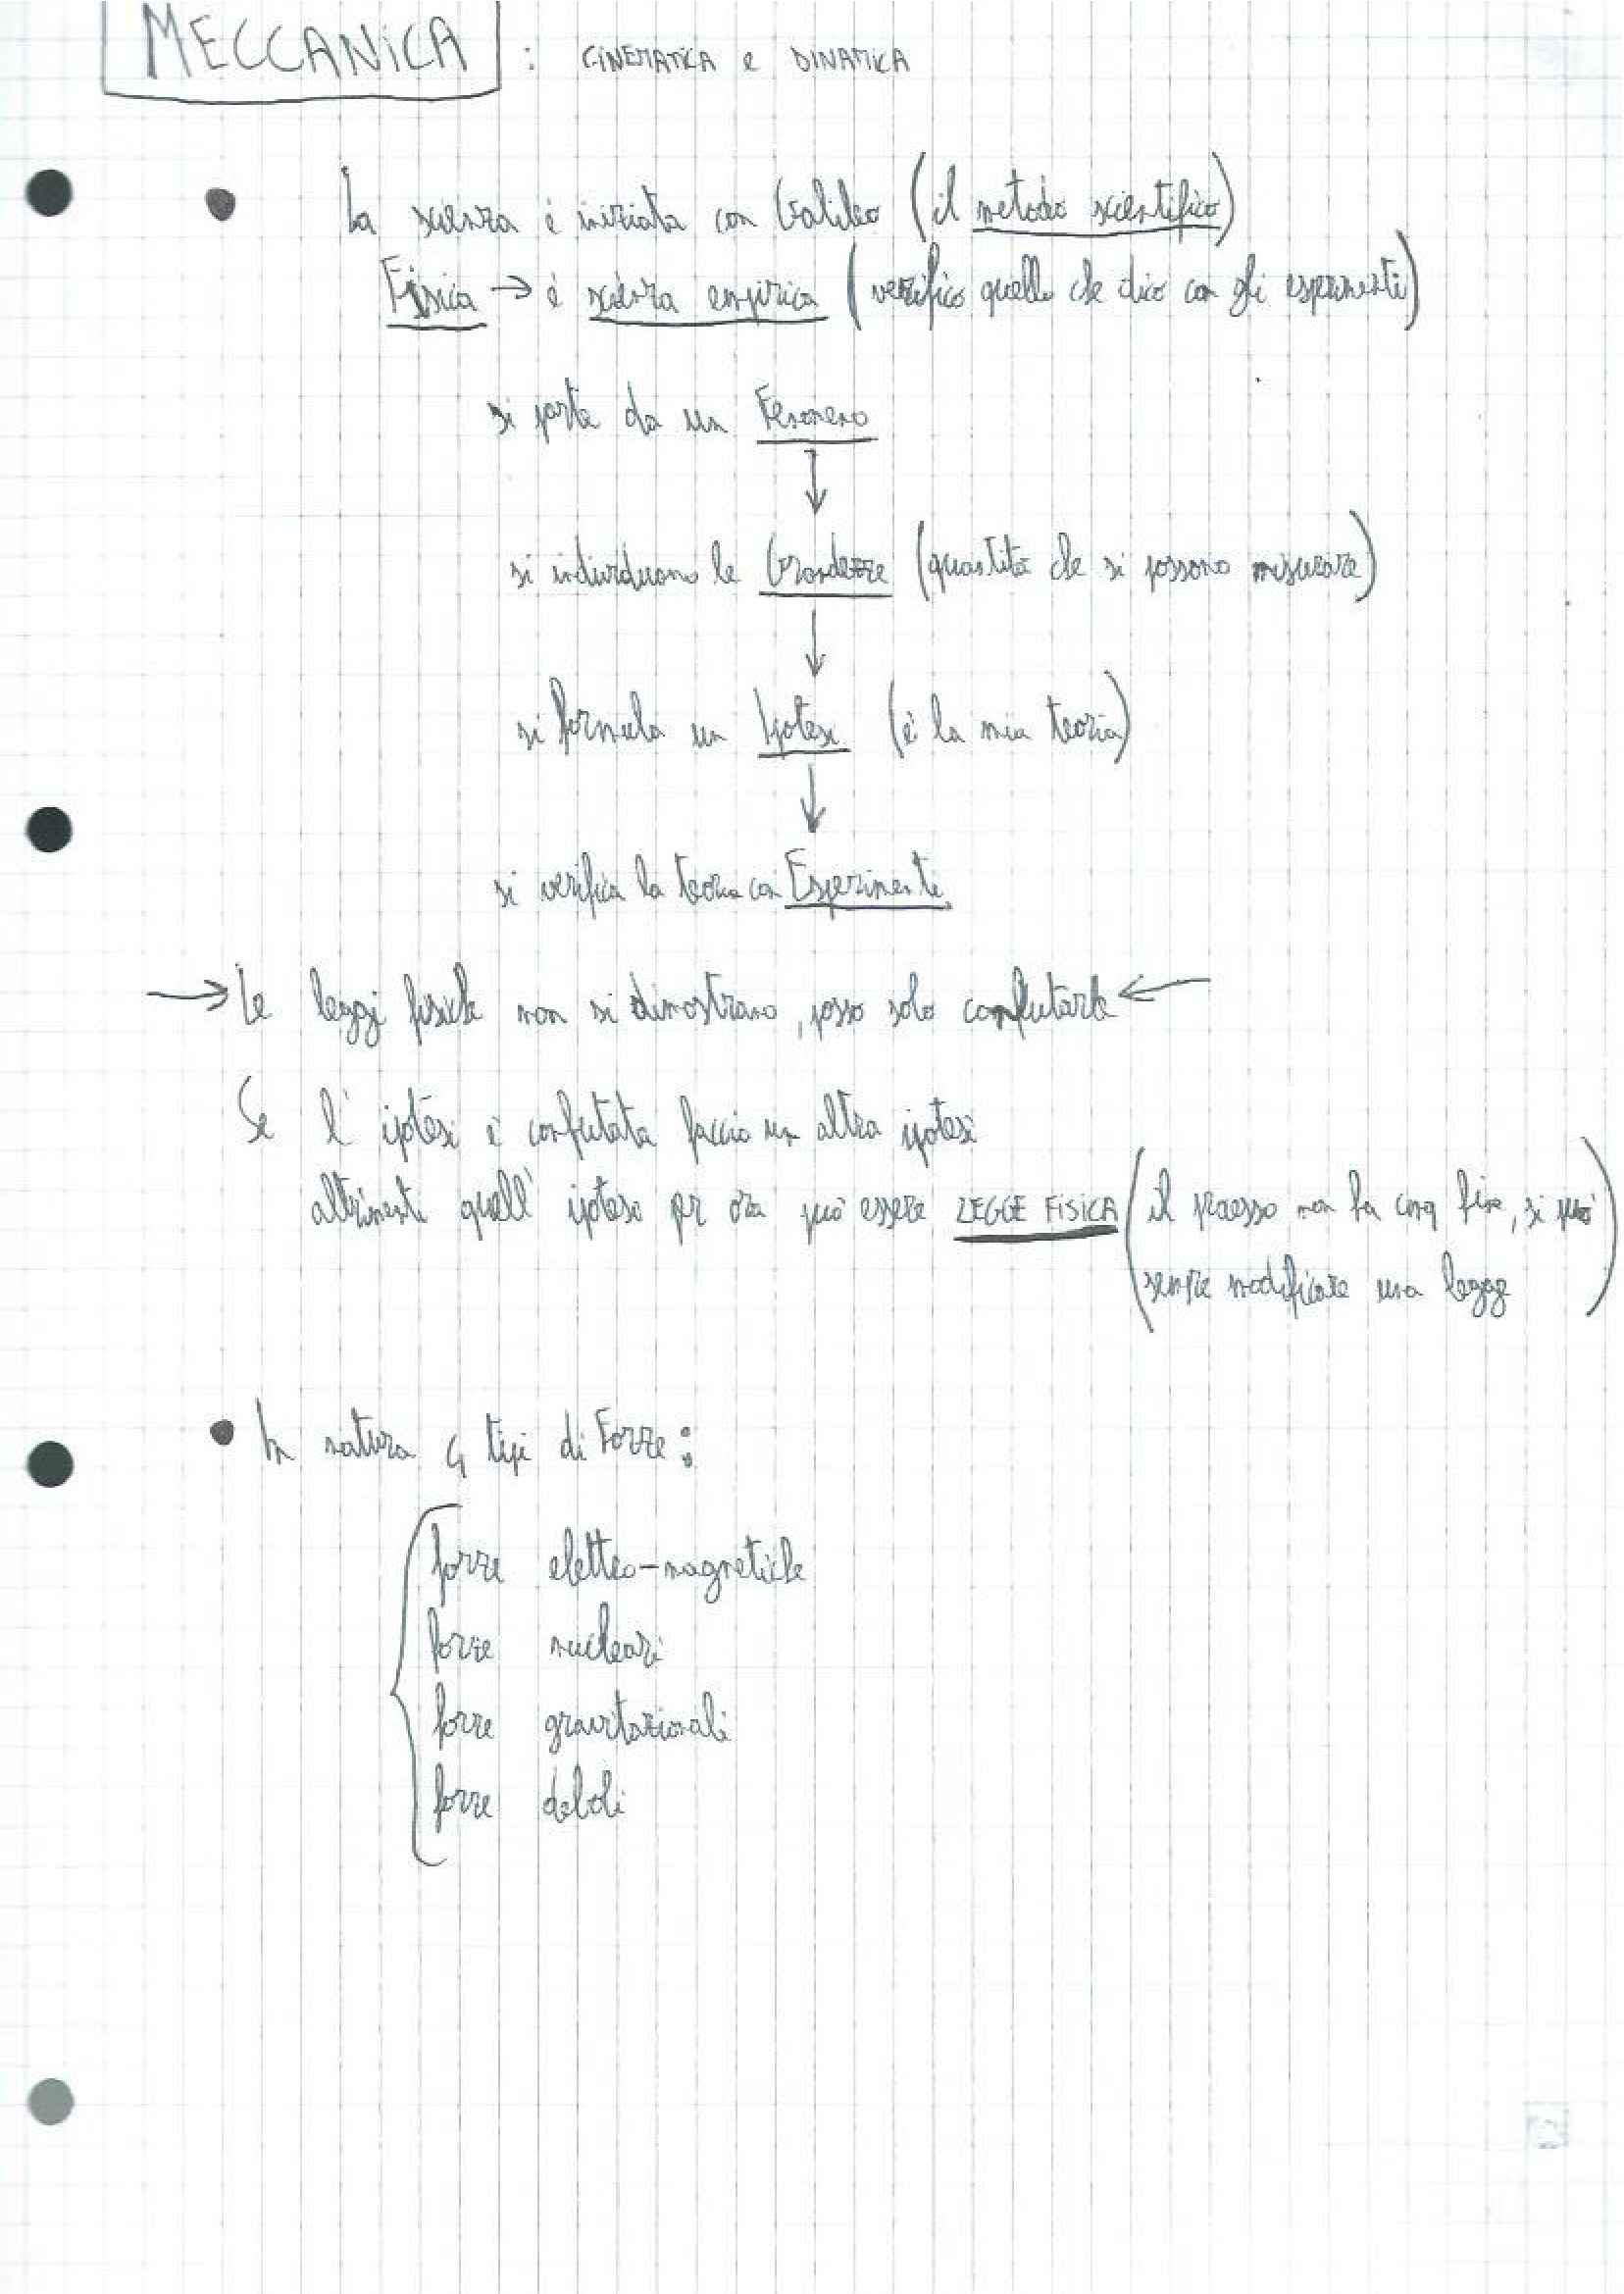 MECCANICA : CINEMATICA e DINAMICA
La scienza è iniziata con Galileo (il metodo scientifico)
Fisica → è scienza empirica (verifico quello che dico con gli esperimenti)
si parte da un Fenomeno
↓
si individuano le Grandezze (quantità che si possono misurare)
↓
si formula un Ipotesi (è la mia teoria)
↓
si verifica la teoria con Esperimenti
→ Le leggi fisiche non si dimostrano, posso solo confutarle ←
Se l'ipotesi è confutata faccio un altra ipotesi
altrimenti quell'ipotesi per ora può essere LEGGE FISICA (il processo non ha cmq fine, si può
sempre modificare una legge)
• In natura 4 tipi di Forze:
forze elettro-magnetiche
forze nucleari
forze gravitazionali
forze deboli